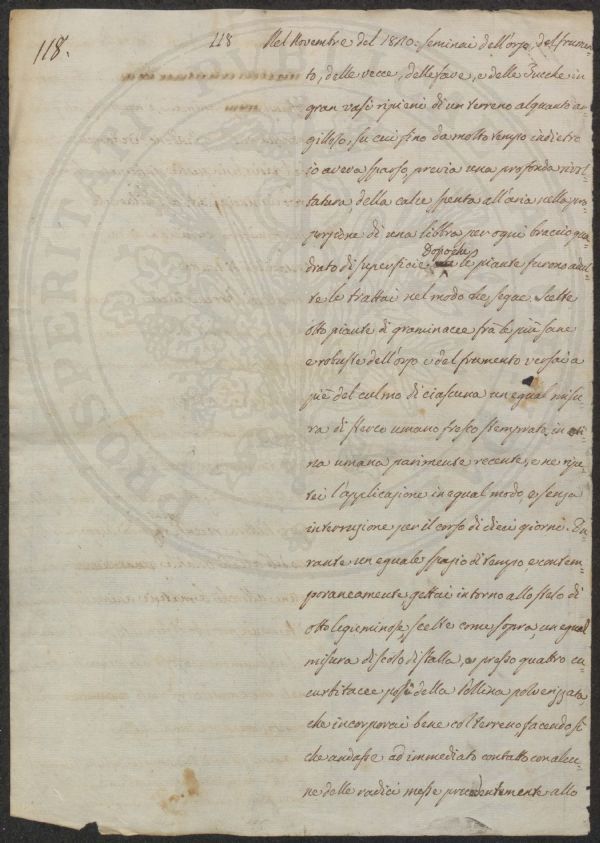 118.
118
Nel Novembre del 1810. seminai dell'orzo, del frumen=
to, delle vecce, delle fave, e delle Zucche in
gran vasi ripieni di un terreno alquanto ar=
gilloso, su cui fino da molto tempo indietro
io aveva sparso, previa una profonda rivol=
tatura della calce spenta all'aria nella pro=
porzione di una libbra per ogni braccio qua=
drato di superficie. Dopoche le piante furono adul=
te le trattai nel modo che segue. Scelte
otto piante di graminacee frà le più sane
e robuste dell'orzo e del frumento versai a
piè del culmo di ciascuna un egual misu=
ra di sterco umano fresco stemprato in ori=
na umana parimente recente, e ne ripe=
tei l'applicazione in egual modo, e senza
interruzione per il corso di dieci giorni. Du=
rante un eguale spazio di tempo e contem=
poraneamente gettai intorno allo stelo di
otto leguminose, scelte come sopra, un egual
misura di scolo di stalla, e presso quattro cu=
curbitacee posi della Pollina polverizzata,
che incorporai bene col terreno, facendo sì
che andasse ad immediato contatto con alcu=
ne delle radici messe precedentemente allo
PROSPERITATI PUBLICAE